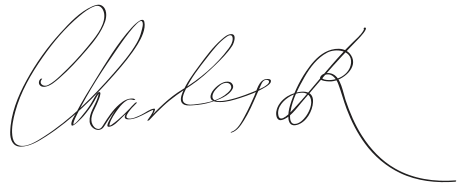 Charles R